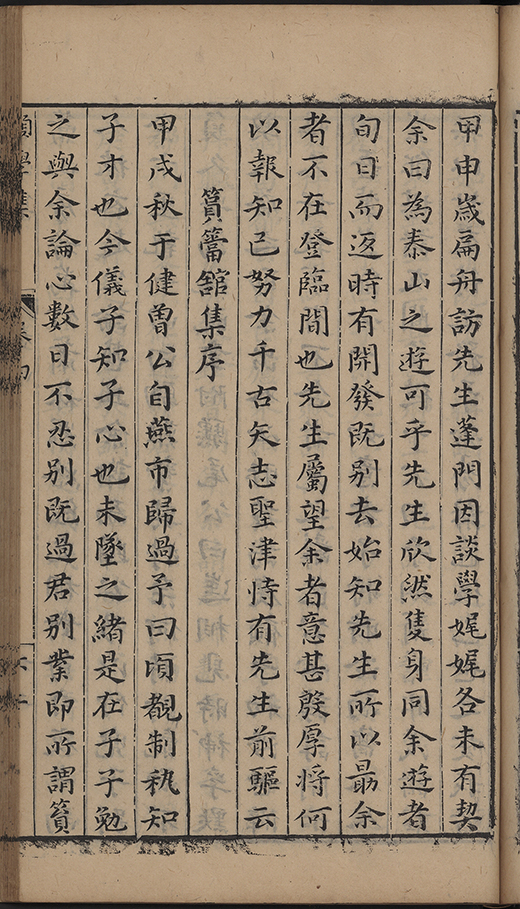 甲申嵗扁舟訪先生蓬門因談學娓娓各未有契
余曰為泰山之遊可乎先生欣然隻身同余遊者
旬日而返時有開發既别去始知先生所以勗余
者不在登臨間也先生屬望余者意甚殷厚將何
以報知已努力千古矢志聖津恃有先生前驅云
篔簹舘集序
甲戌秋于健曾公自燕市歸過予曰頃覩制秇知
子才也今儀子知子心也未墜之緒是在子子勉
之與余論心數日不忍别既過君别業即所謂篔
學集